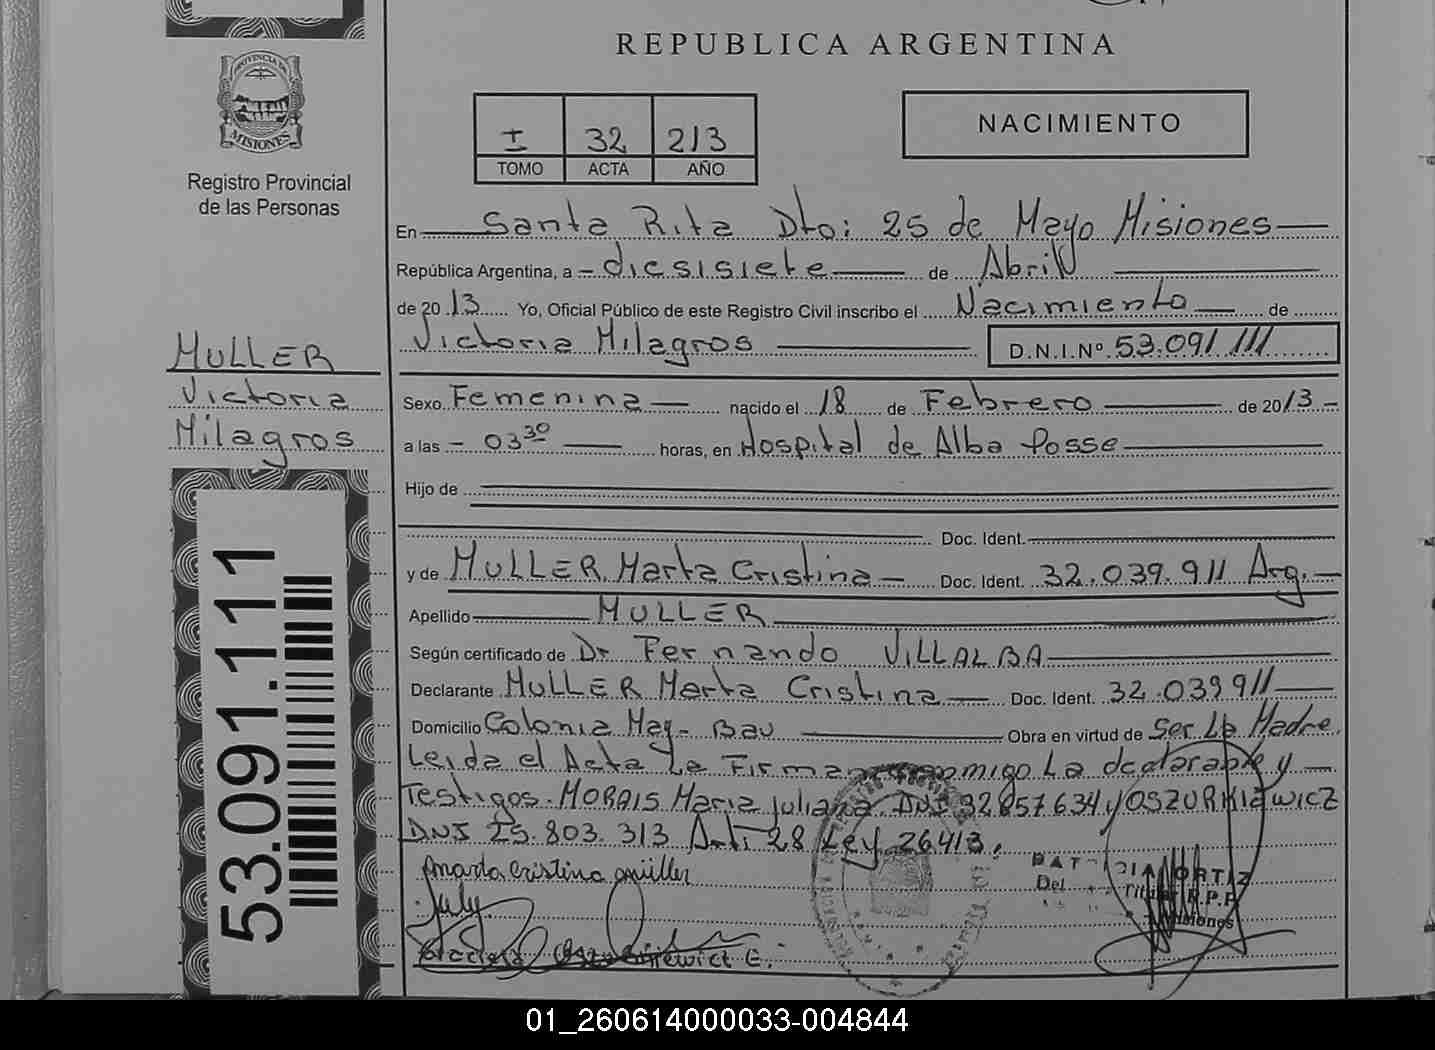 REPUBLICA ARGENTINA
PROVINCIA DE
MISIONES
Registro Provincial
de las Personas
I 32 213
TOMO ACTA AÑO
NACIMIENTO
En Santa Rita Dto: 25 de Mayo Misiones
República Argentina, a diesisiete de Abril
de 2013 Yo, Oficial Público de este Registro Civil inscribo el Nacimiento de
Victoria Milagros D.N.I.Nº 53.091.111
MULLER
Victoria
Milagros
Sexo Femenina nacido el 18 de Febrero de 2013
a las 03 30 horas, en Hospital de Alba Posse
Hijo de
Doc. Ident.
y de MULLER Marta Cristina Doc. Ident. 32.039.911 Arg.
Apellido MULLER
Según certificado de Dr Fernando VILLALBA
Declarante MULLER Marta Cristina Doc. Ident. 32.039911
Domicilio Colonia May- Bau Obra en virtud de Ser La Madre
Leida el Acta La Firman conmigo La declarante y
Testigos. MORAIS Maria juliana DNI 32857634 y OSZURKIEWICZ
DNI 25.803.313 Art: 28 Ley 26413.
Marta Cristina Müller
July
E.
ORTIZ
Titular R.P.P.
Misiones
53.091.111
01_260614000033-004844